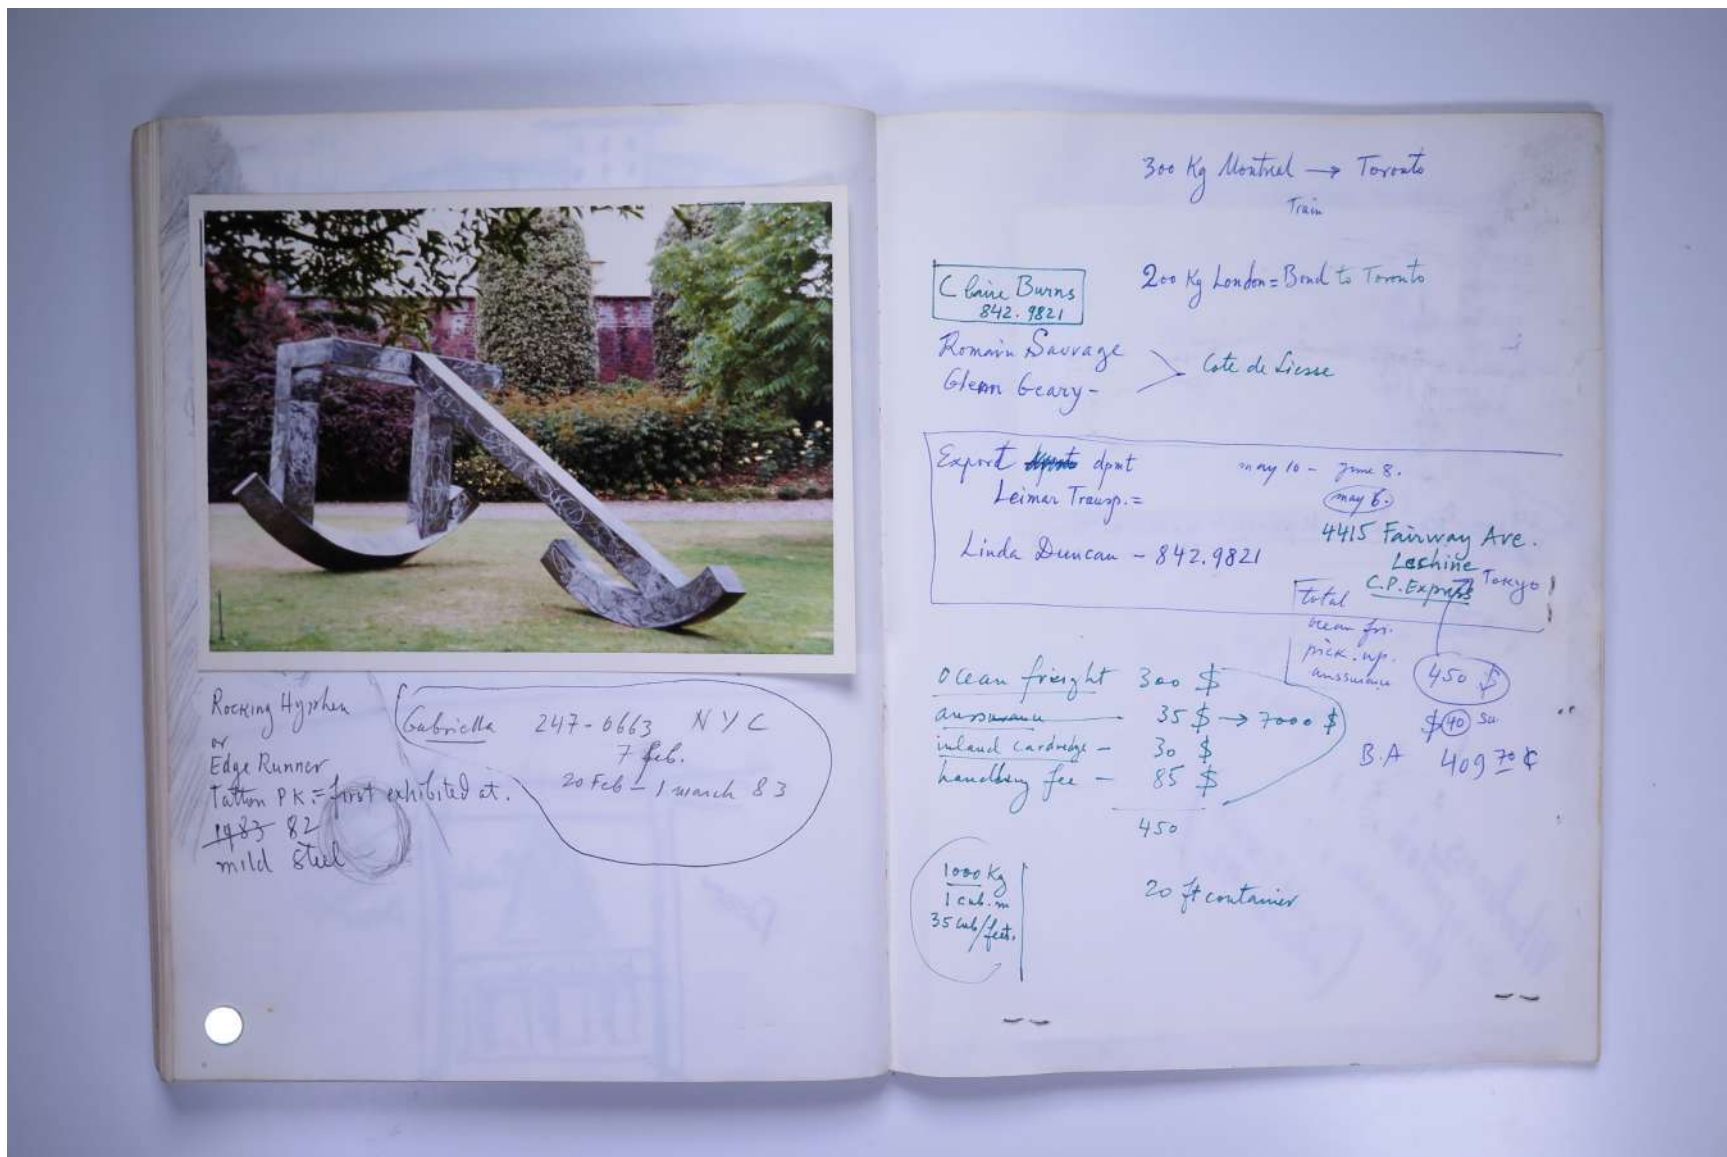 Rocking Hyphen
or
Edge Runner
Tatton PK = first exhibited at.
1983 82
mild Steel
Gabriella 247-0663 NYC
7 feb.
20 Feb - 1 march 83
300 Kg Montreal → Toronto
Train
200 Kg London = Bond to Toronto
Claire Burns
842.9821
Romain Sauvage
Glenn Geary -
Cote de Liesse
Export dpmt
Leimar Transp. =
Linda Duncan - 842.9821
may 10 - june 8.
may 6.
4415 Fairway Ave.
Lachine
C.P. Express
Tokyo
total
ocean fri.
pick. up.
anssurance
450 $
$ 40
B.A 409 70 ¢
Ocean freight 300 $
anssurance - 35 $ → 7000 $
inland cardredge - 30 $
handling fee - 85 $
450
1000 Kg
1 cub. m
35 cub/feet.
20 ft container